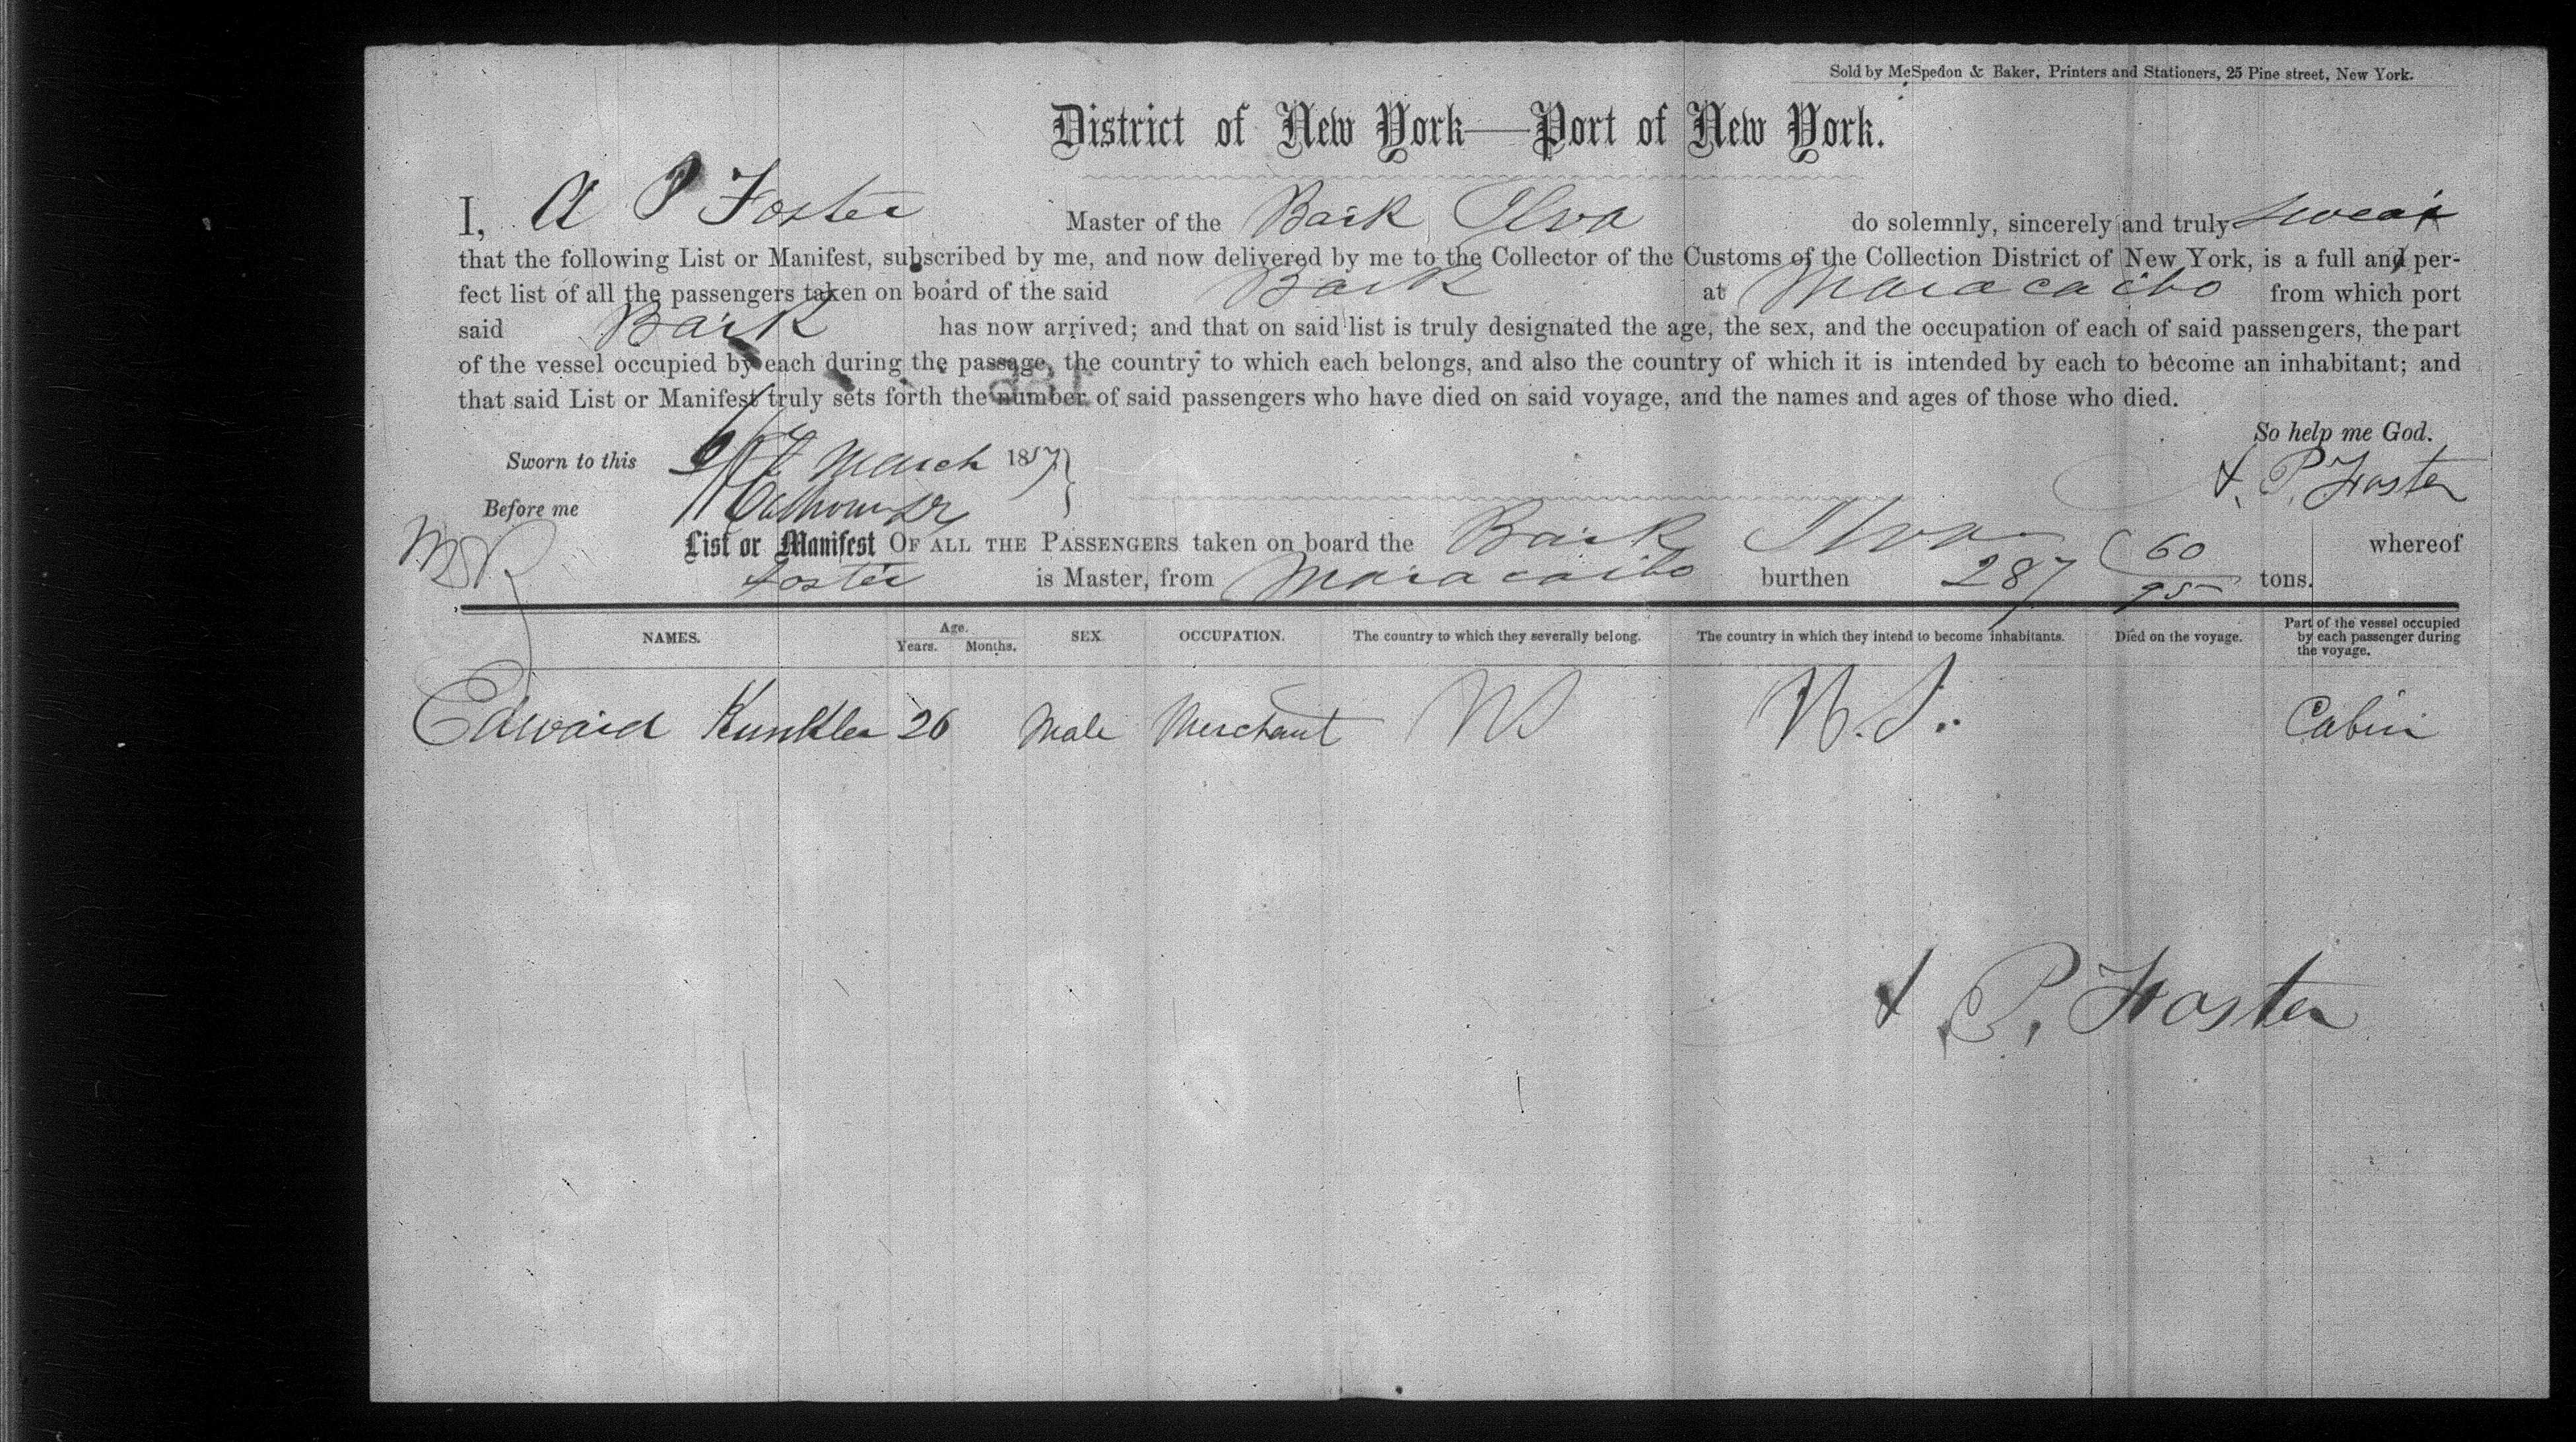 Sold by McSpedon & Baker, Printers and Stationers, 25 Pine street, New York.
District of New York—Port of New York.
I, A P Foster Master of the Bark Ilva do solemnly, sincerely and truly swear
that the following List or Manifest, subscribed by me, and now delivered by me to the Collector of the Customs of the Collection District of New York, is a full and per-
fect list of all the passengers taken on board of the said Bark at Maracaibo from which port
said Bark has now arrived; and that on said list is truly designated the age, the sex, and the occupation of each of said passengers, the part
of the vessel occupied by each during the passage, the country to which each belongs, and also the country of which it is intended by each to become an inhabitant; and
that said List or Manifest truly sets forth the number of said passengers who have died on said voyage, and the names and ages of those who died.
So help me God.
Sworn to this March 1857
A. P. Foster
Before me
List or Manifest OF ALL THE PASSENGERS taken on board the Bark Ilva whereof
Foster is Master, from Maracaibo burthen 287 60/95 tons.
NAMES. Age. Years. Months. SEX. OCCUPATION. The country to which they severally belong. The country in which they intend to become inhabitants. Died on the voyage. Part of the vessel occupied by each passenger during the voyage.
Edward Kunkler 26 Male Merchant US U.S. Cabin
A. P. Foster